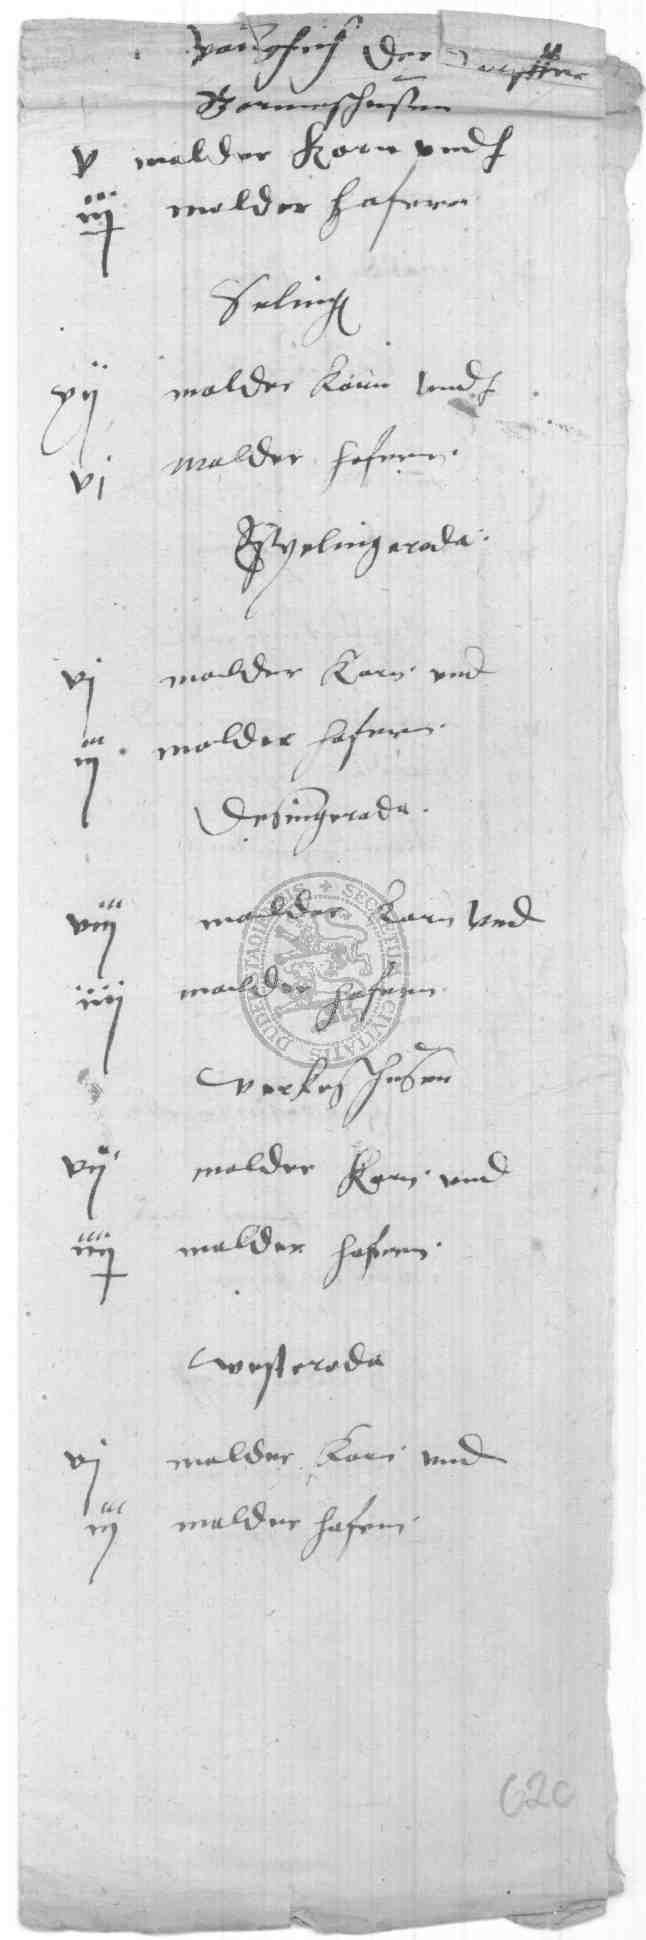 der
Germershusen
v malder korn und
iij malder hafern
Seling
xij malder korn und
vj malder hafern
Tyelingeroda
vj malder korn und
iij malder hafern
Desingeroda
viij malder korn und
iiij malder hafern
werkes husen
vij malder korn und
iiij malder hafern
westeroda
vj malder korn und
iij malder hafern
SECRETUM CIVITATIS
62c